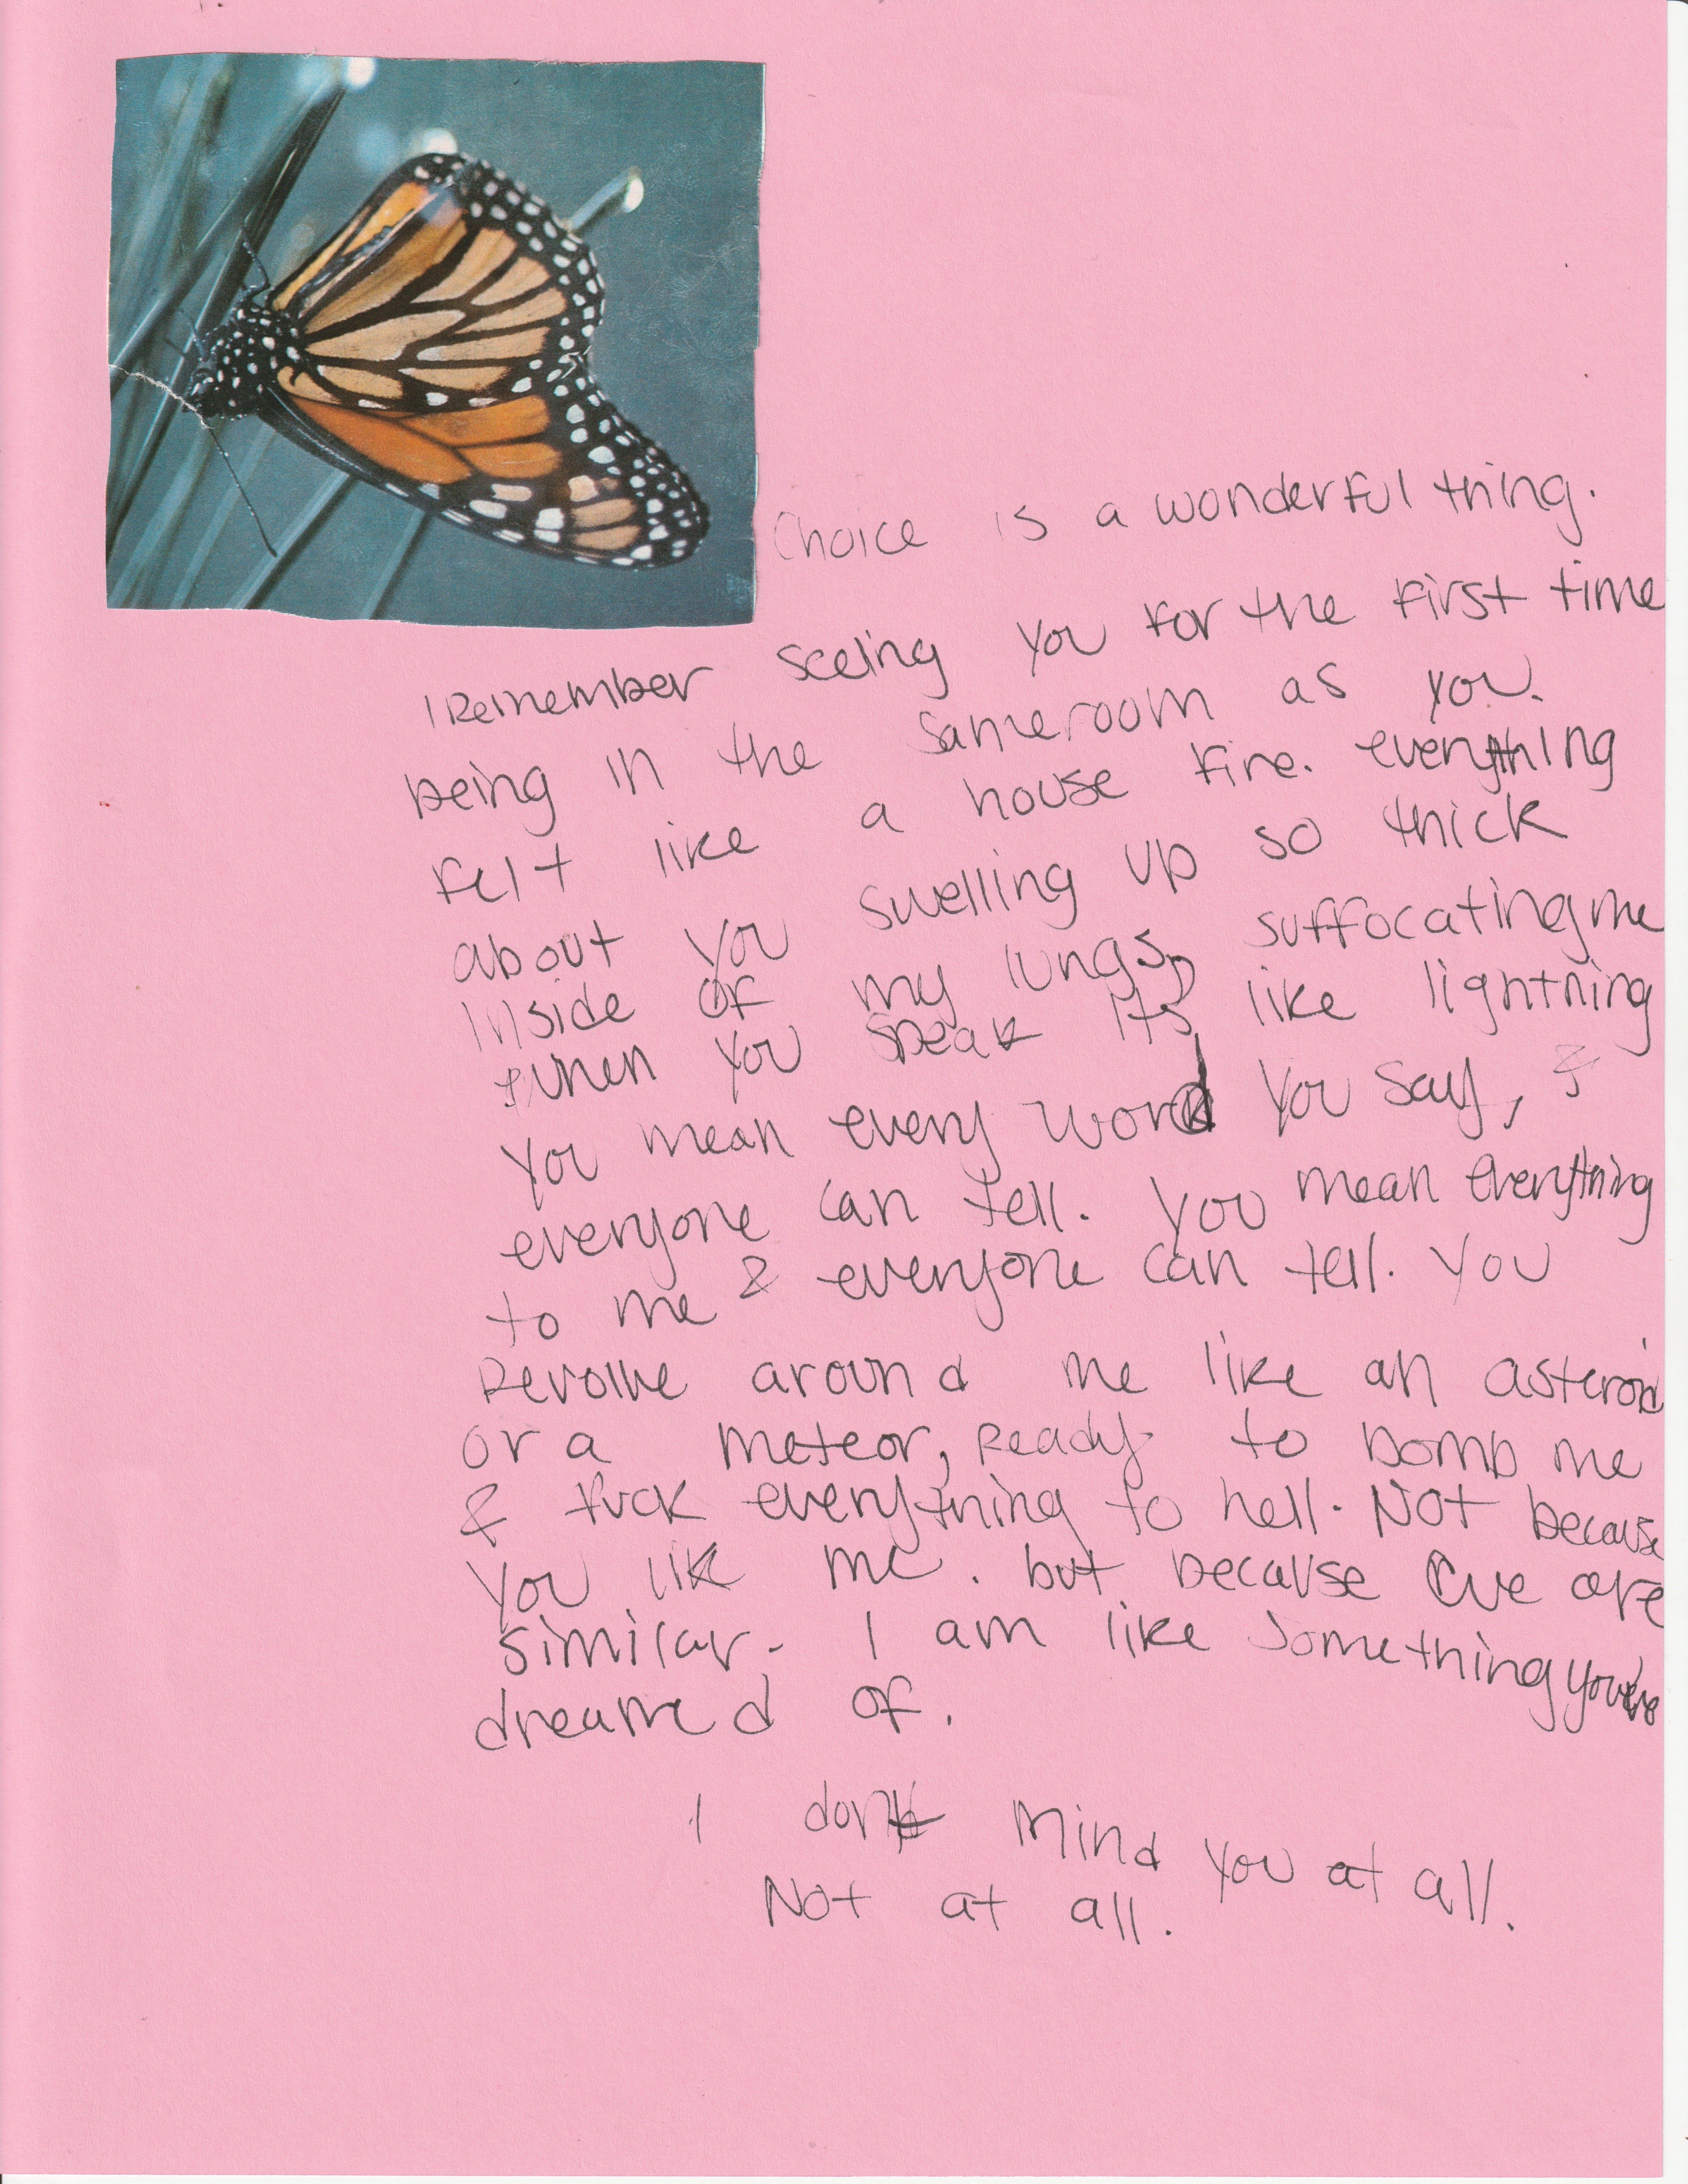 Choice is a wonderful thing.
I Remember seeing you for the first time
being in the same room as you.
felt like a house fire. everything
about you swelling up so thick
inside of my lungs, suffocating me
when you speak its like lightning
you mean every word you say, &
everyone can tell. you mean everything
to me & everyone can tell. You
Revolve around me like an asteroid
or a meteor, Ready to bomb me
& fuck everything to hell. Not because
you like me. but because we are
similar. I am like something
dreamed of.
I dont mind you at all.
Not at all.